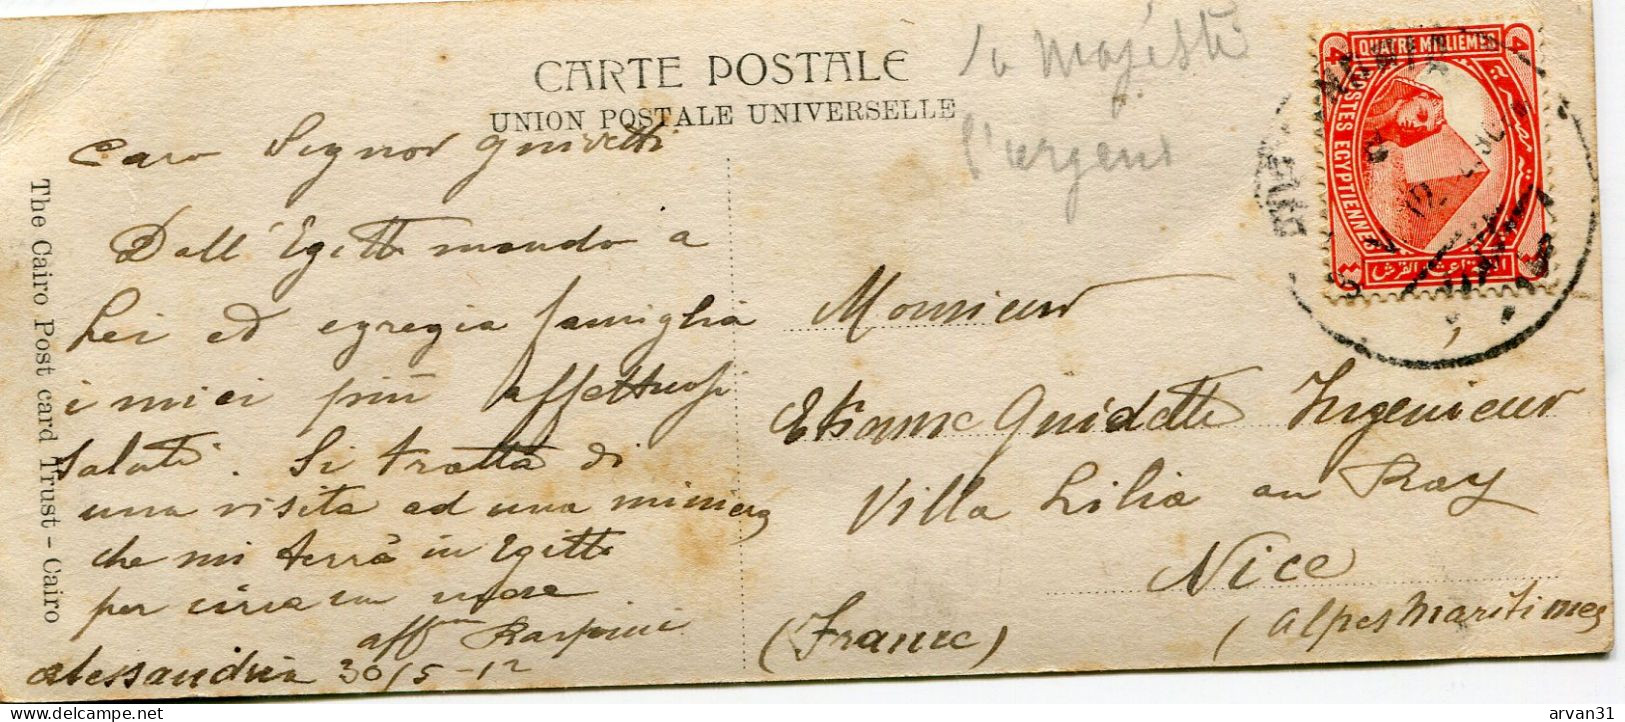 CARTE POSTALE
UNION POSTALE UNIVERSELLE
The Cairo Post card Trust - Cairo
Caro Signor
Dall'Egitto mando a
Lei ed egregia famiglia
i miei più affettuosi
saluti. Si tratta di
una visita ad una miniera
che mi terrà in Egitto
per circa un mese
aff
Alessandria 30/5-12
la Majesté
Monsieur
Etienne Guidetti Ingenieur
Villa Lilia au Ray
Nice
(France)
(Alpes Maritimes
QUATRE MILLIEMES
POSTES EGYPTIENNES
4
4
arvan31